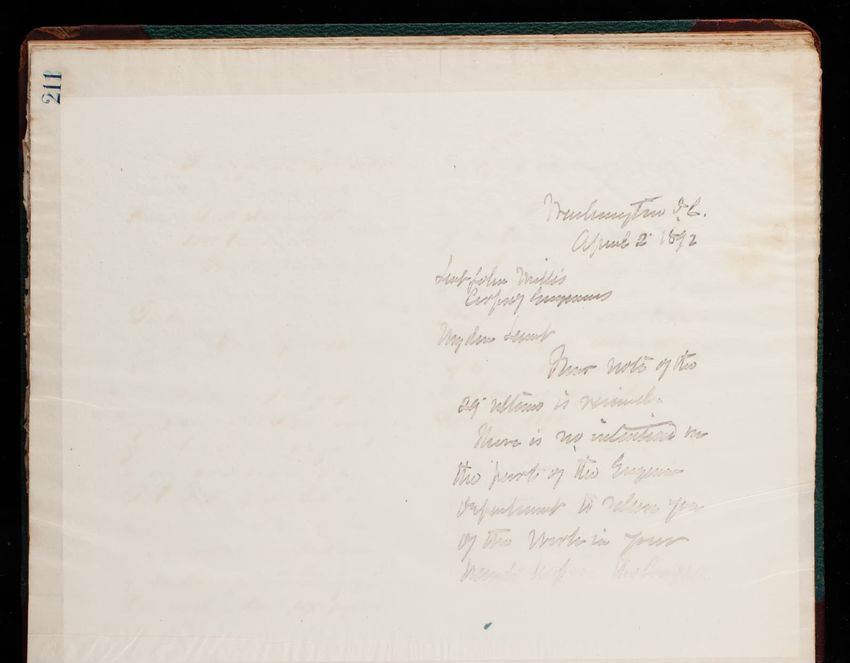 211
Washington D.C.
April 2 1892
Lieut John Millis
Corps of Engineers
My dear Lieut
Your note of the
29 ultimo is received.
There is no intention on
the part of the Engineer
Department to relieve you
of the work in your
hands before